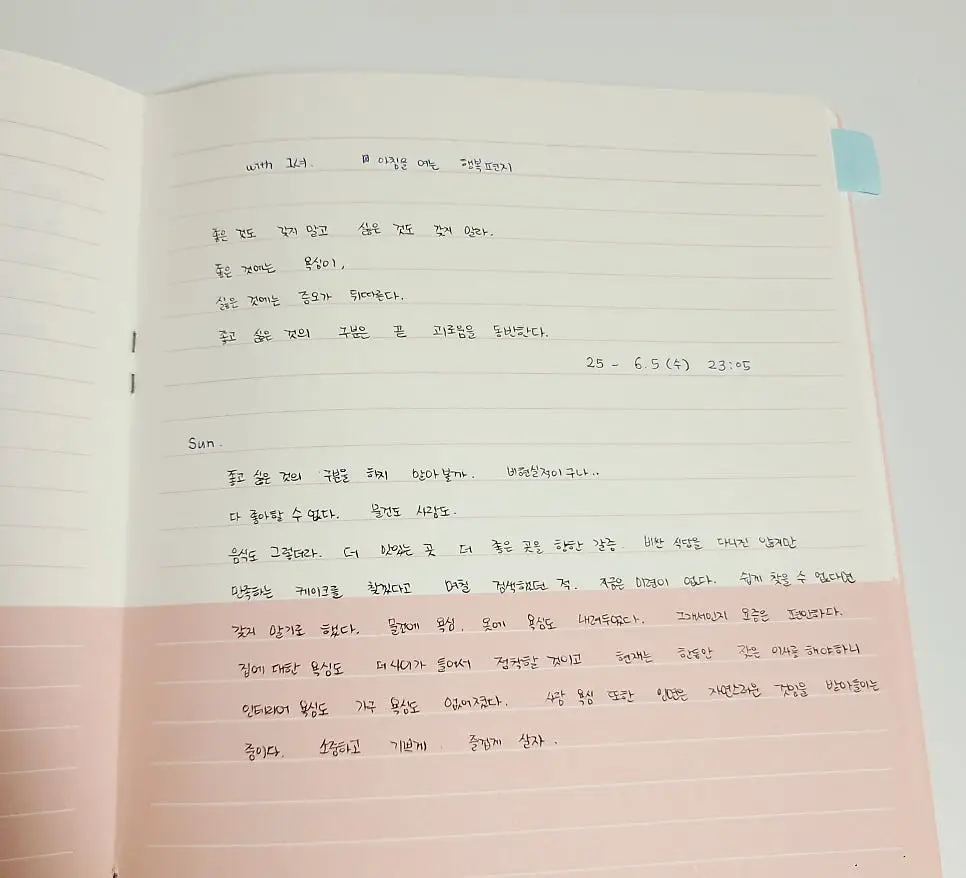 with 그녀. 아침을 여는 행복편지
좋은 것도 갖지 말고 싫은 것도 갖지 말라.
좋은 것에는 욕심이,
싫은 것에는 증오가 뒤따른다.
좋고 싫은 것의 구분은 끝 괴로움을 동반한다.
25 - 6.5 (수) 23:05
Sun.
좋고 싫은 것의 구분을 하지 말아볼까. 비현실적이구나..
다 좋아할 수 없다. 물건도 사람도.
음식도 그렇더라. 더 맛있는 곳 더 좋은 곳을 향한 갈증. 비싼 식당을 다니진 않지만
만족하는 케이크를 찾겠다고 며칠 검색했던 적. 지금은 미련이 없다. 쉽게 찾을 수 없다면
갖지 않기로 했다. 물건에 욕심, 옷에 욕심도 내려두었다. 그래서인지 요즘은 편안하다.
집에 대한 욕심도 더 나이가 들어서 정착할 것이고 현재는 한동안 잦은 이사를 해야하니
인테리어 욕심도 가구 욕심도 없어졌다. 사람 욕심 또한 인연은 자연스러운 것임을 받아들이는
중이다. 소중하고 기쁘게. 즐겁게 살자.